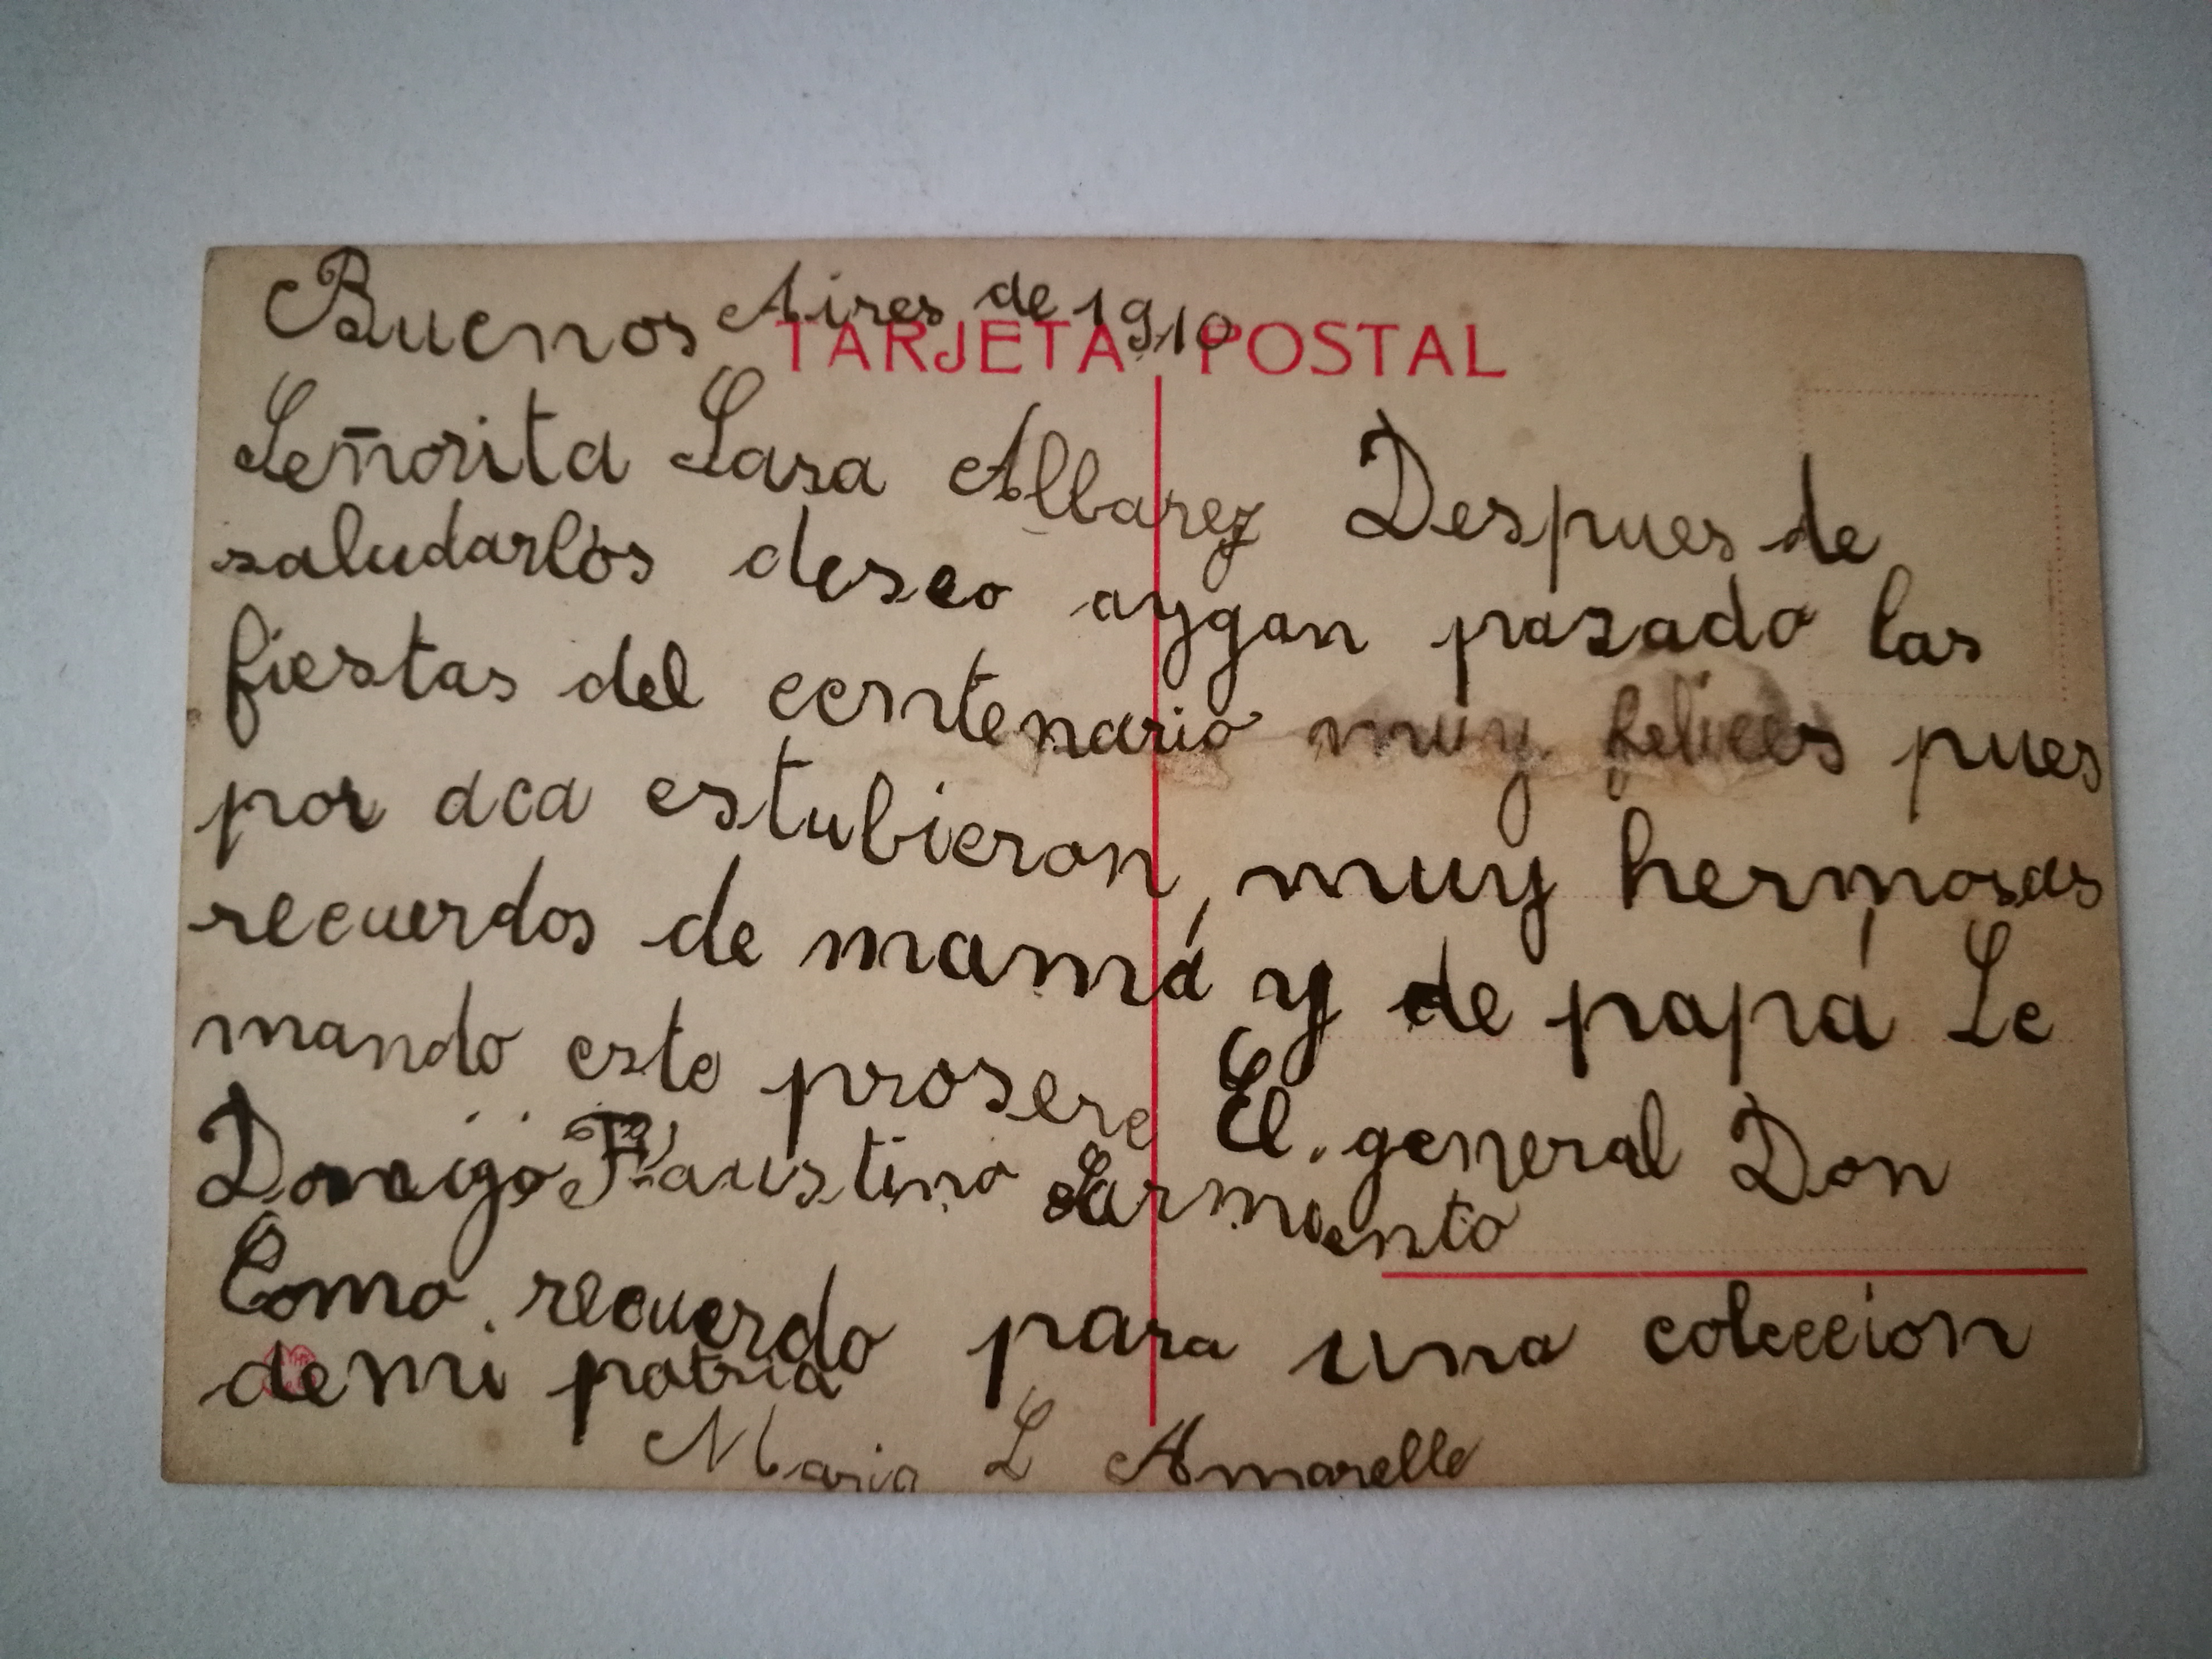 Buenos Aires de 1910
TARJETA POSTAL
Señorita Sara Albarez Despues de
saludarlos deseo aygan pasado las
fiestas del centenario muy felices pues
por aca estubieron, muy hermosas
recuerdos de mamá y de papá Le
mando este prosere El. general Don
Domigo Faustino Sarmiento
Como recuerdo para una coleccion
de mi patria
Maria L Amarelle